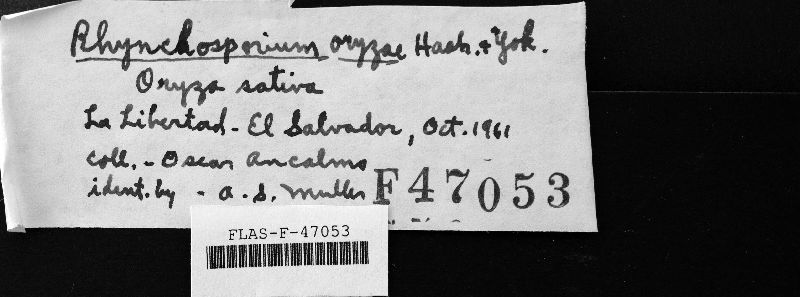 Rhynchosporium oryzae Hash. & Yok.
Oryza sativa
La Libertad - El Salvador, Oct. 1961
coll. - Oscar Ancalmo
ident. by - A. S. Muller
F47053
FLAS-F-47053